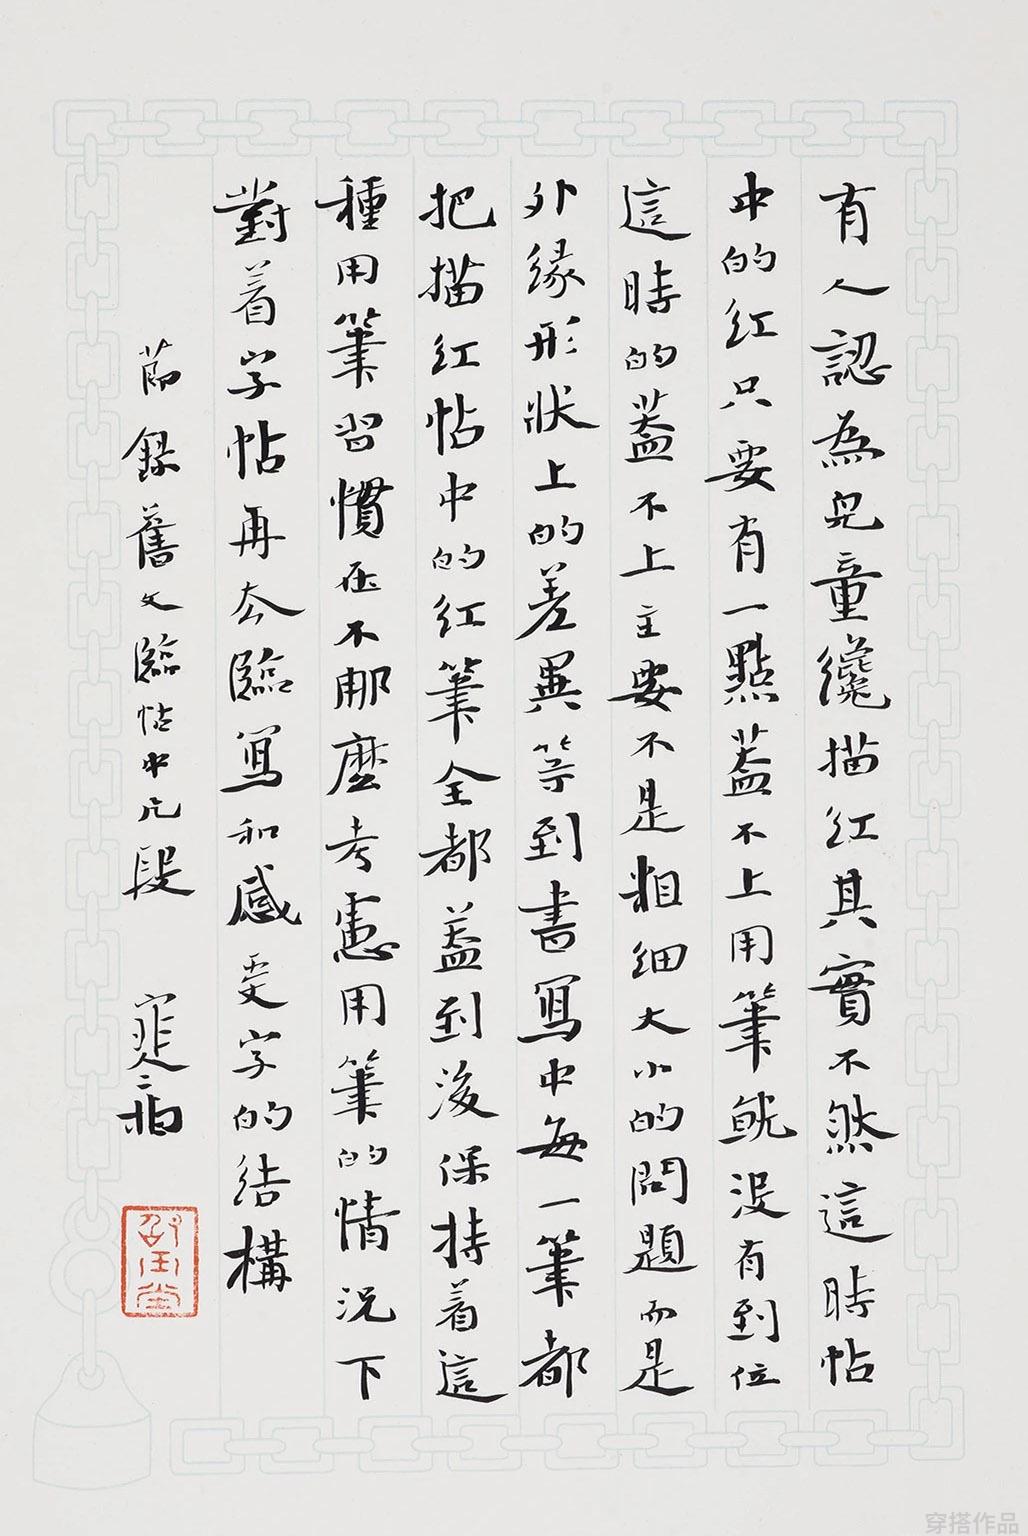 有人認為兒童纔描紅其實不然這時帖
中的紅只要有一點蓋不上用筆就沒有到位
這時的蓋不上主要不是粗細大小的問題而是
外緣形狀上的差異等到書寫中每一筆都
把描紅帖中的紅筆全都蓋到後保持着這
種用筆習慣在不那麼考慮用筆的情況下
對着字帖再去臨寫和感受字的結構
節錄舊文臨帖中片段
穿搭作品